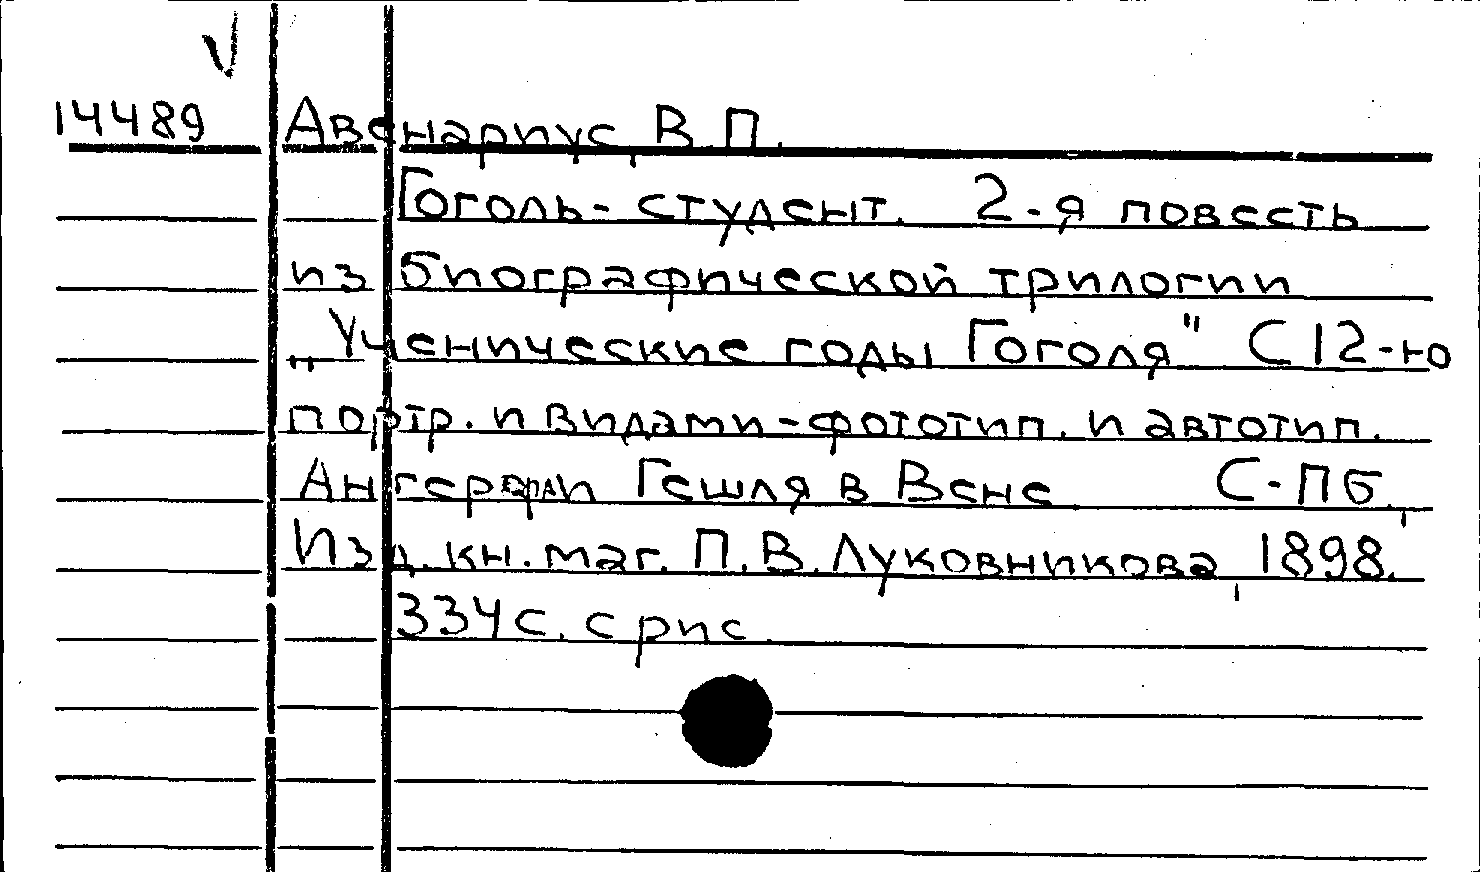 14489 Авенариус, В.П.
Гоголь-студент. 2-я повесть
из биографической трилогии
„Ученические годы Гоголя" С 12-ю
портр. и видами-фототип. и автотип.
Гешля в Вене С-ПБ,
Изд. кн. маг. П.В. Луковникова, 1898.
334с. с рис.